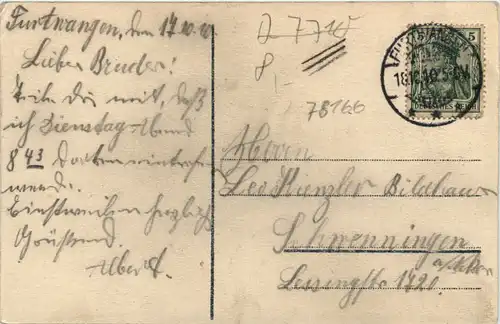 Furtwangen, den 17.10.10
Lieber Bruder!
Teile dir mit, daß
ich Dienstag-Abend
8 43 dorten eintrefen
werde.
Einstweilen herzlich
Grüßend.
Albert.
7710
8,-
78166
FURTWANGEN
18.10.10. 5-6V
5
DEUTSCHES REICH
Herrn
Leo Kienzler Bildhauer
Schwenningen
a/Neckar
Lessingstr